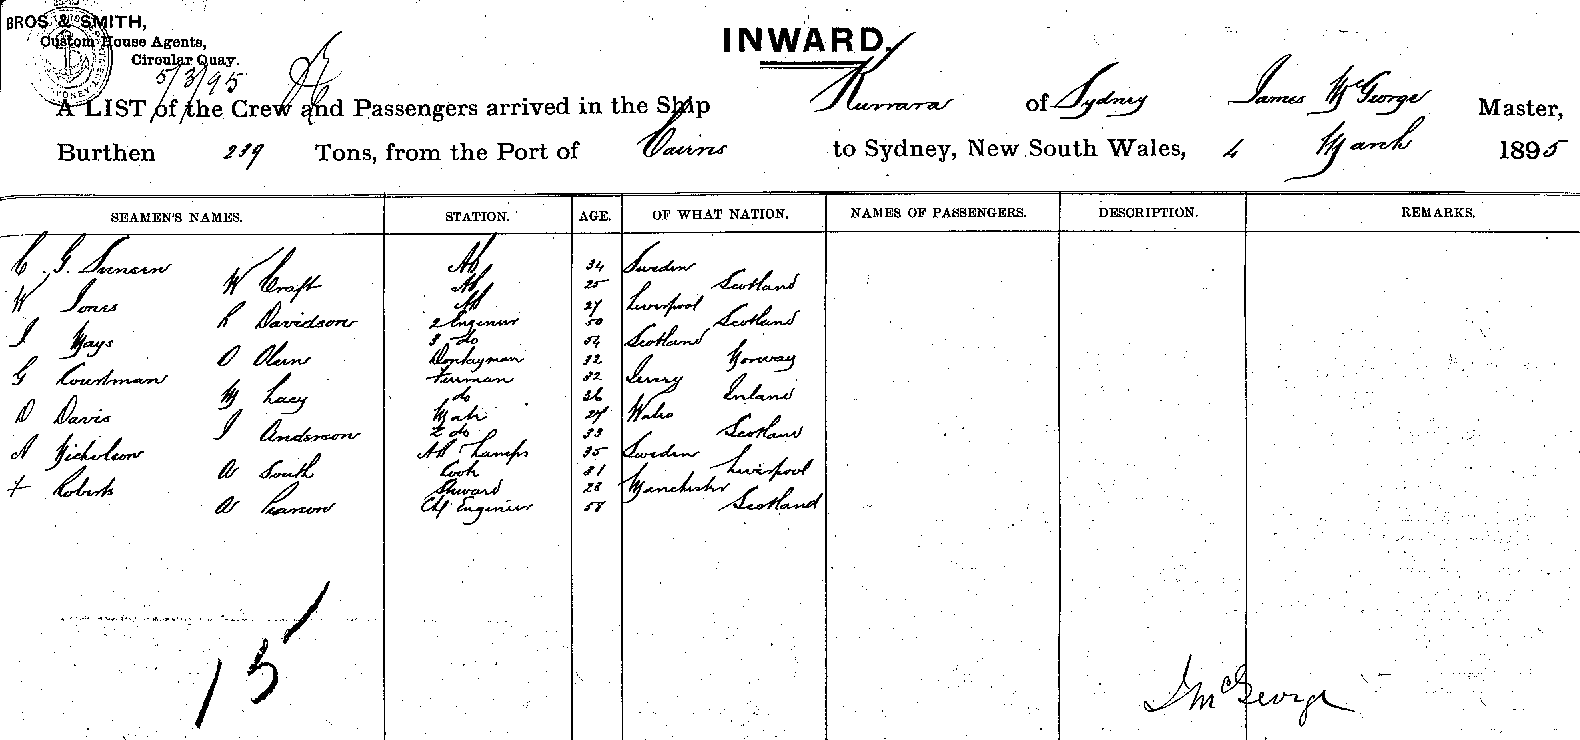 BROS & SMITH,
Custom House Agents,
Circular Quay.
5/3/95
INWARD.
A LIST of the Crew and Passengers arrived in the Ship Kurrara of Sydney James McGeorge Master,
Burthen 239 Tons, from the Port of Cairns to Sydney, New South Wales, 4 March 1895
SEAMEN'S NAMES. STATION. AGE. OF WHAT NATION. NAMES OF PASSENGERS. DESCRIPTION. REMARKS.
C. G. AB 34 Sweden
W Craft AB 25 Scotland
W Jones AB 27 Liverpool
L Davidson 2 Engineer 50 Scotland
J Mays 3 do 54 Scotland
O Olsen Donkeyman 32 Norway
G Courtman Fireman 32 Jersey
M Lacy do 36 Ireland
D Davis Mate 27 Wales
J Anderson 2 do 33 Scotland
A Nicholson AB Lamps 35 Sweden
W South Cook 31 Liverpool
Roberts Steward 28 Manchester
W Pearson Chf Engineer 58 Scotland
15
J McGeorge